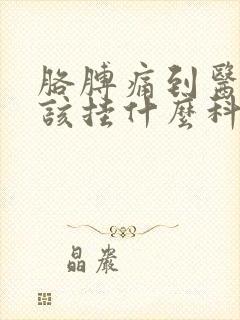 胳膊痛到醫
該挂什麼科
晶嚴